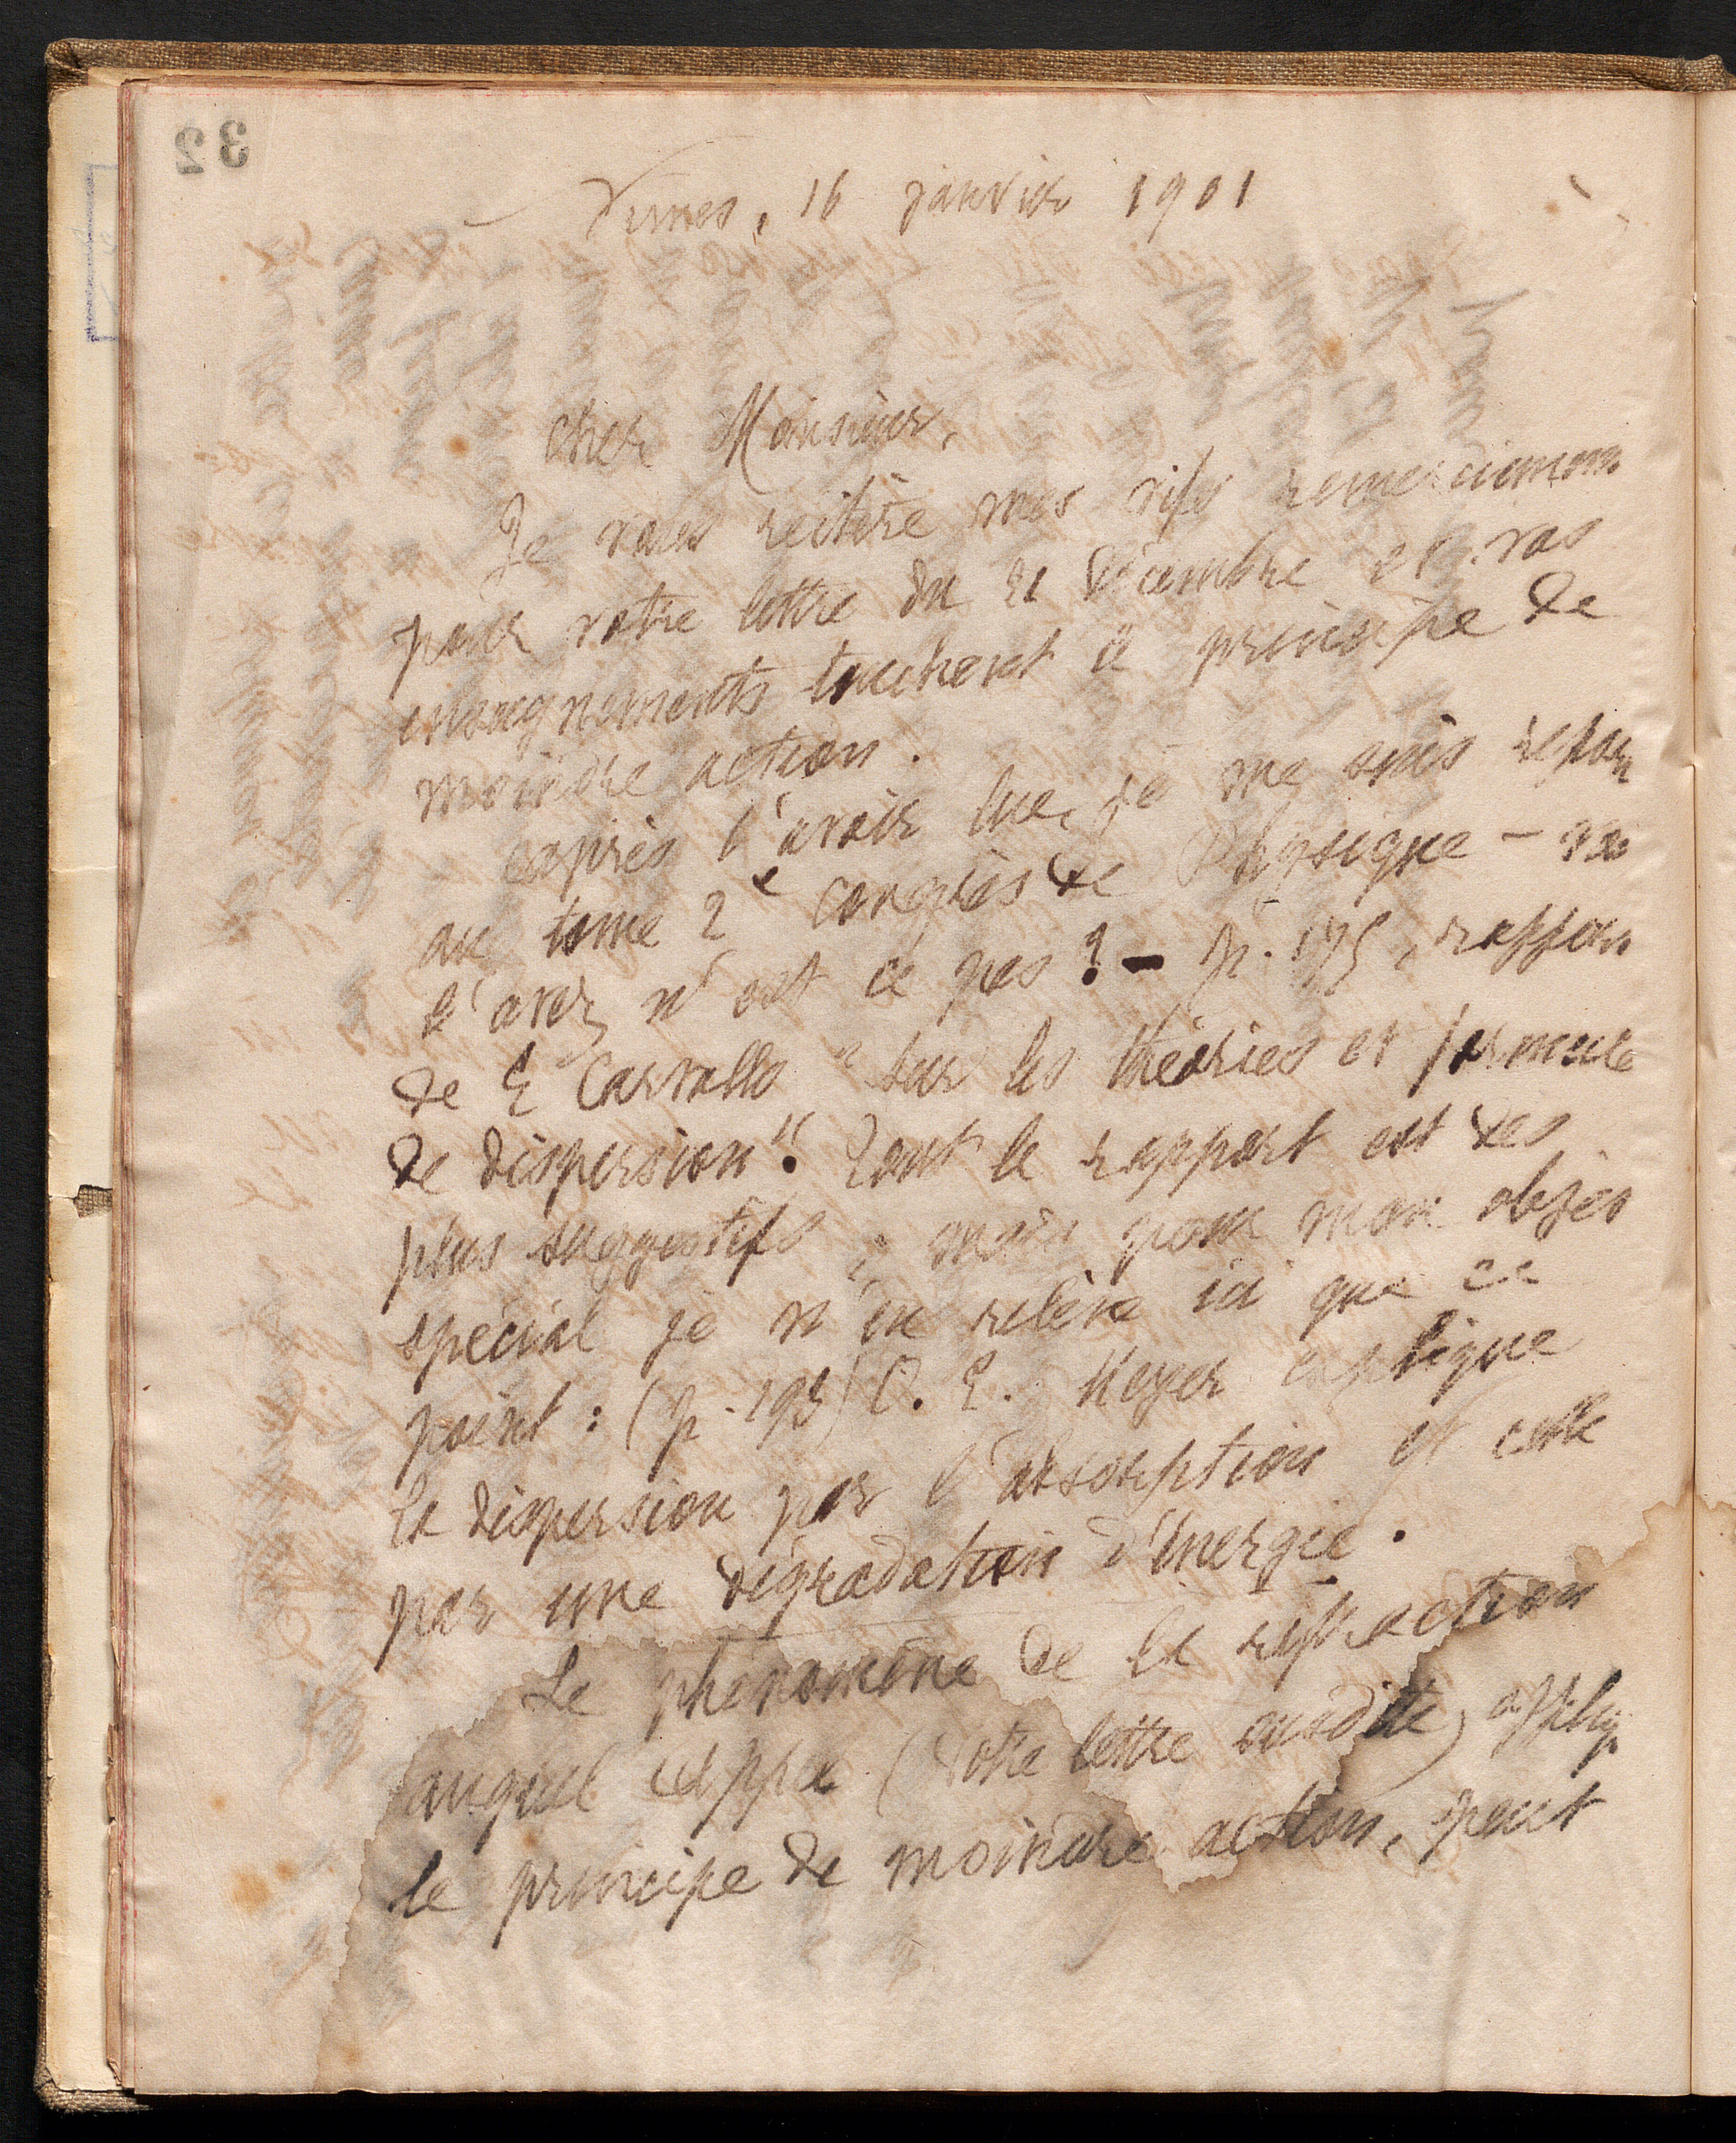 32
Nimes, 16 janvier 1901
Cher Monsieur,
Je vous réitère mes vifs remerciements
pour votre lettre du 21 décembre et vos
enseignements touchant le principe de
moindre action.
Après l'avoir lue, je me suis
au tome 2e congrès de Physique -
l'avez n'est ce pas ? - p. 175, rapport
de E Carvallo "Sur les théories et formule
de dispersion". Tout le rapport est des
plus suggestifs ; mais pour mon objet
spécial je n'en relève ici que ce
point : (p. 193) O. E. Meyer explique
la dispersion par l'absorption et celle
par une dégradation d'énergie.
Le phénomène de la réfraction
auquel (votre lettre susdite)
le principe de moindre action, peut